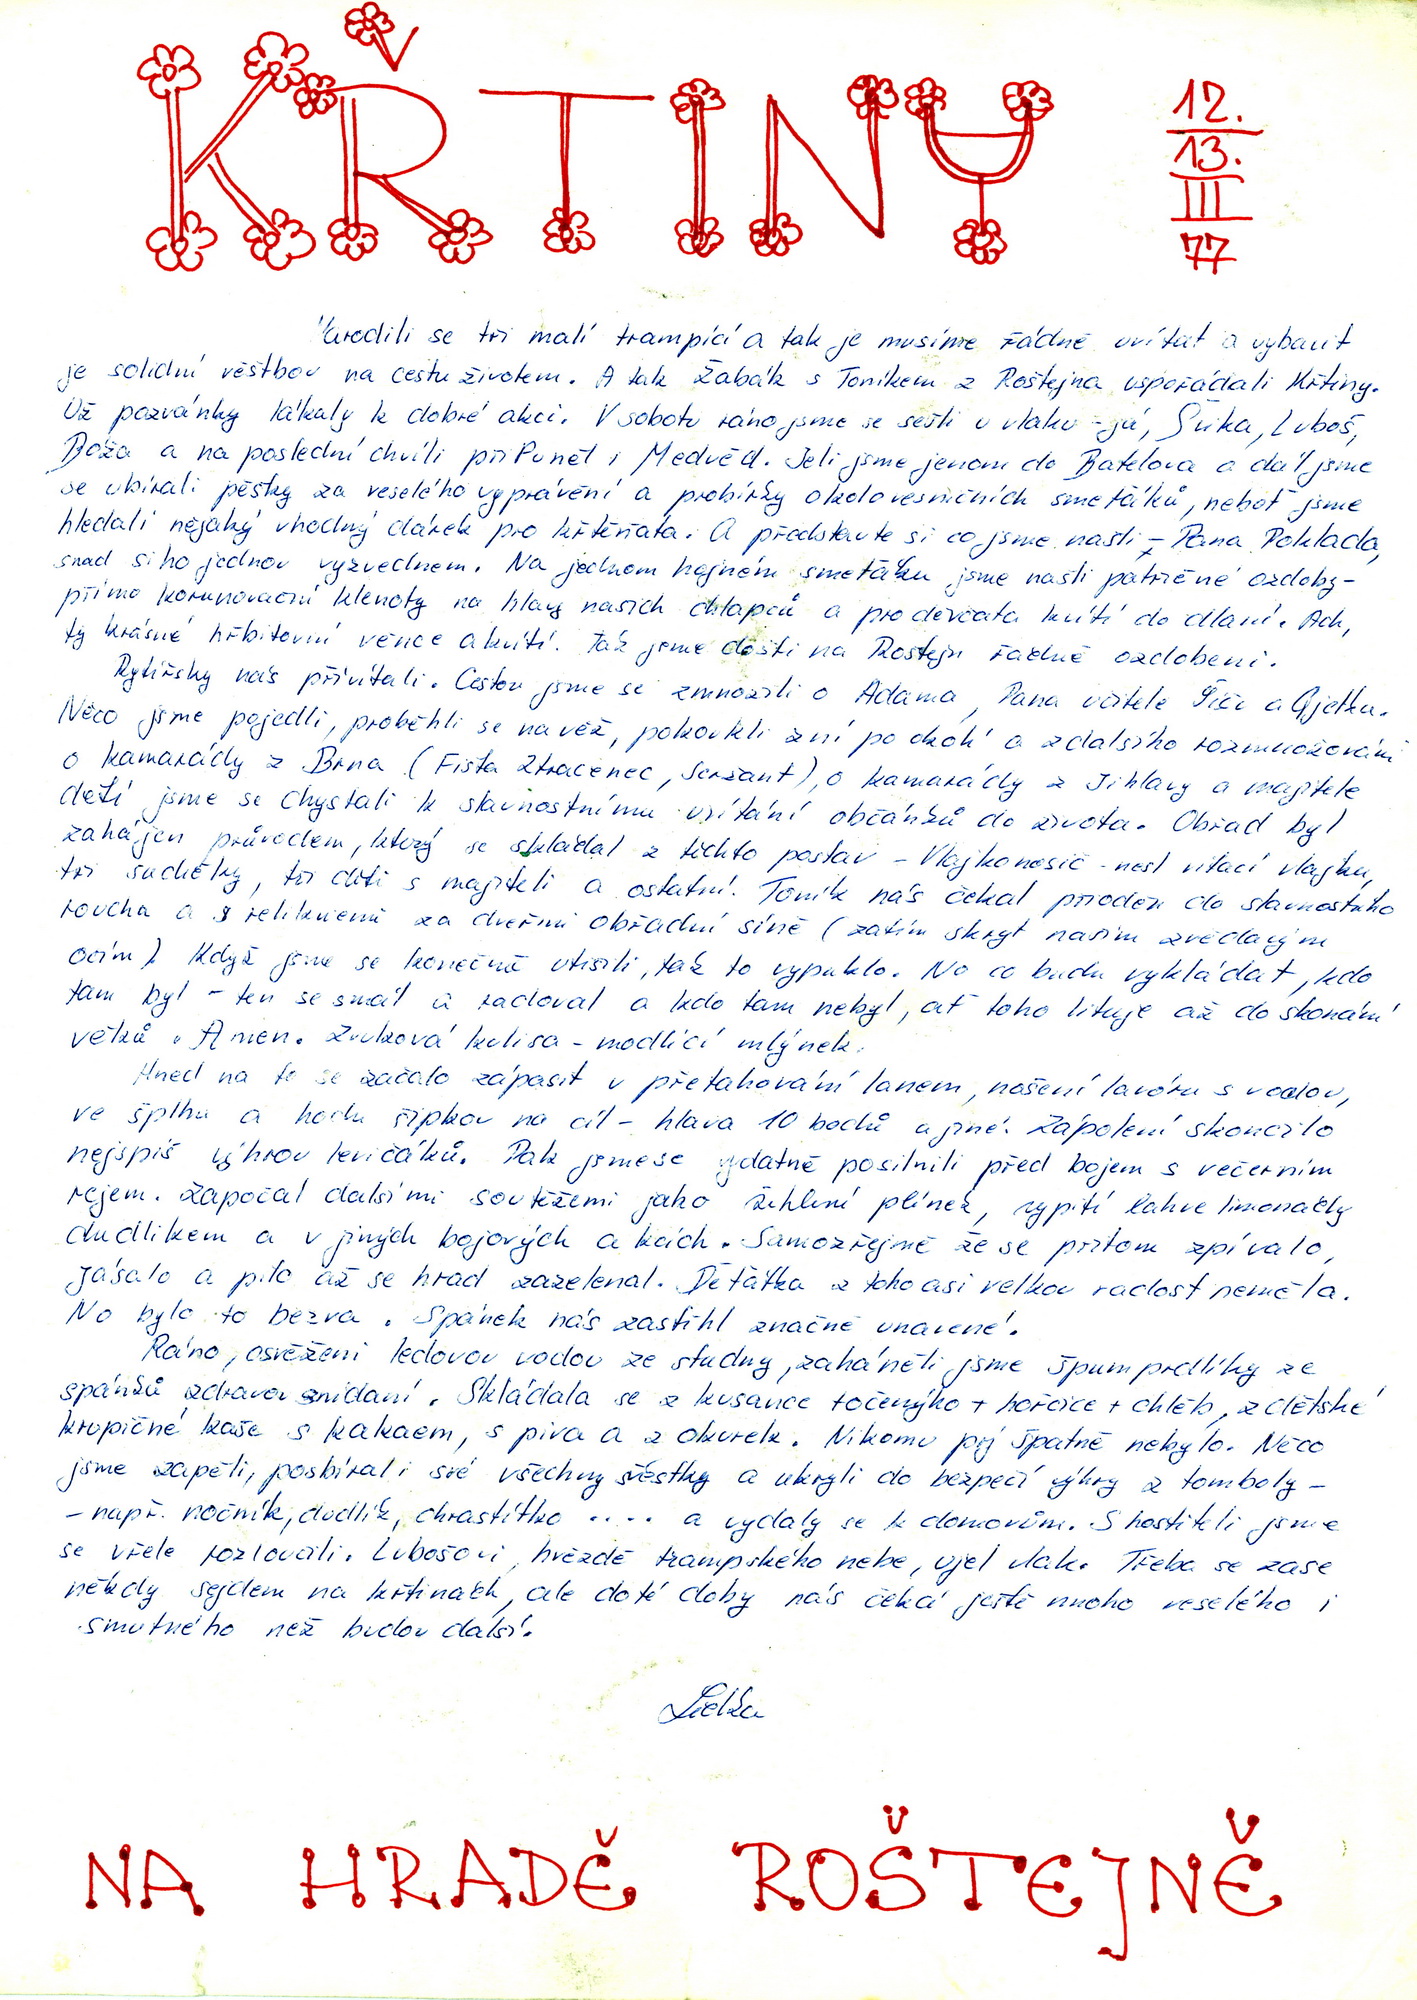 KŘTINY
12.
13.
III
77
Narodili se tři malí trampíci a tak je musíme řádně uvítat a vybavit
je solidní věštbou na cestu životem. A tak Žabák s Toníkem z Roštejna uspořádali křtiny.
Už pozvánky lákaly k dobré akci. V sobotu ráno jsme se sešli u vlaku - já, Luboš,
Boža a na poslední chvíli při i Medvěd. Jeli jsme jenom do Batelova a dál jsme
se ubírali pěšky za veselého vyprávění a probírky okolo vesničních smeťáků, neboť jsme
hledali nějaký vhodný dárek pro křtěňata. A představte si co jsme našli - Pana Poklada,
snad si ho jednou vyzvednem. Na jednom hojném smeťáku jsme našli patřičné ozdoby -
přímo korunovační klenoty na hlavy našich chlapců a pro děvčata kvítí do dlaní. Ach,
ty krásné hřbitovní věnce a kvítí. Tak jsme došli na Roštejn řádně ozdobeni.
Rytířsky nás přivítali. Cestou jsme se zmnožili o Adama, Pana učitele
Něco jsme pojedli, proběhli se na věž, pokoukli z ní po okolí a z dalšího rozmnožování
o kamarády z Brna (Fišta Ztracenec, Seržant), o kamarády z Jihlavy a majitele
dětí jsme se chystali k slavnostnímu vítání občánků do života. Obřad byl
zahájen průvodem, který se skládal z těchto postav - Vlajkonosič - nesl vítací vlajku,
tři sudičky, tři děti s majiteli a ostatní. Toník nás čekal přioděn do slavnostního
roucha a s relikviemi za dveřmi obřadní síně (zatím skryt našim zvědavým
očím). Když jsme se konečně utišili, tak to vypuklo. No co budu vykládat, kdo
tam byl - ten se smál a radoval a kdo tam nebyl, ať toho lituje až do skonání
věků. Amen. Zvuková kulisa - modlící mlýnek.
Hned na to se začalo zápasit v přetahování lanem, nošení lavóru s vodou,
ve šplhu a hodu šipkou na cíl - hlava 10 bodů a jiné. Zápolení skončilo
nejspíš výhrou levičáků. Pak jsme se vydatně posilnili před bojem s večerním
rejem. Započal dalšími soutěžemi jako žehlení plínek, vypití lahve limonády
dudlíkem a v jiných bojových akcích. Samozřejmě že se přitom zpívalo,
jásalo a pilo až se hrad zazelenal. Děťátka z toho asi velkou radost neměla.
No bylo to bezva. Spánek nás zastihl značně unavené.
Ráno, osvěženi ledovou vodou ze studny, zaháněli jsme špumprdlíky ze
spánků zdravou snídaní. Skládala se z kusance točenýho + hořčice + chléb, z dětské
krupičné kaše s kakaem, s piva a z okurek. Nikomu prý špatně nebylo. Něco
jsme zapěli, posbírali své všechny švestky a ukryli do bezpečí výhry z tomboly -
- např. nočník, dudlík, chrastítko .... a vydaly se k domovům. S hostiteli jsme
se vřele rozloučili. Lubošovi, hvězdě trampského nebe, ujel vlak. Třeba se zase
někdy sejdem na křtinách, ale do té doby nás čeká ještě mnoho veselého i
smutného než budou další.
NA HRADĚ ROŠTEJNĚ